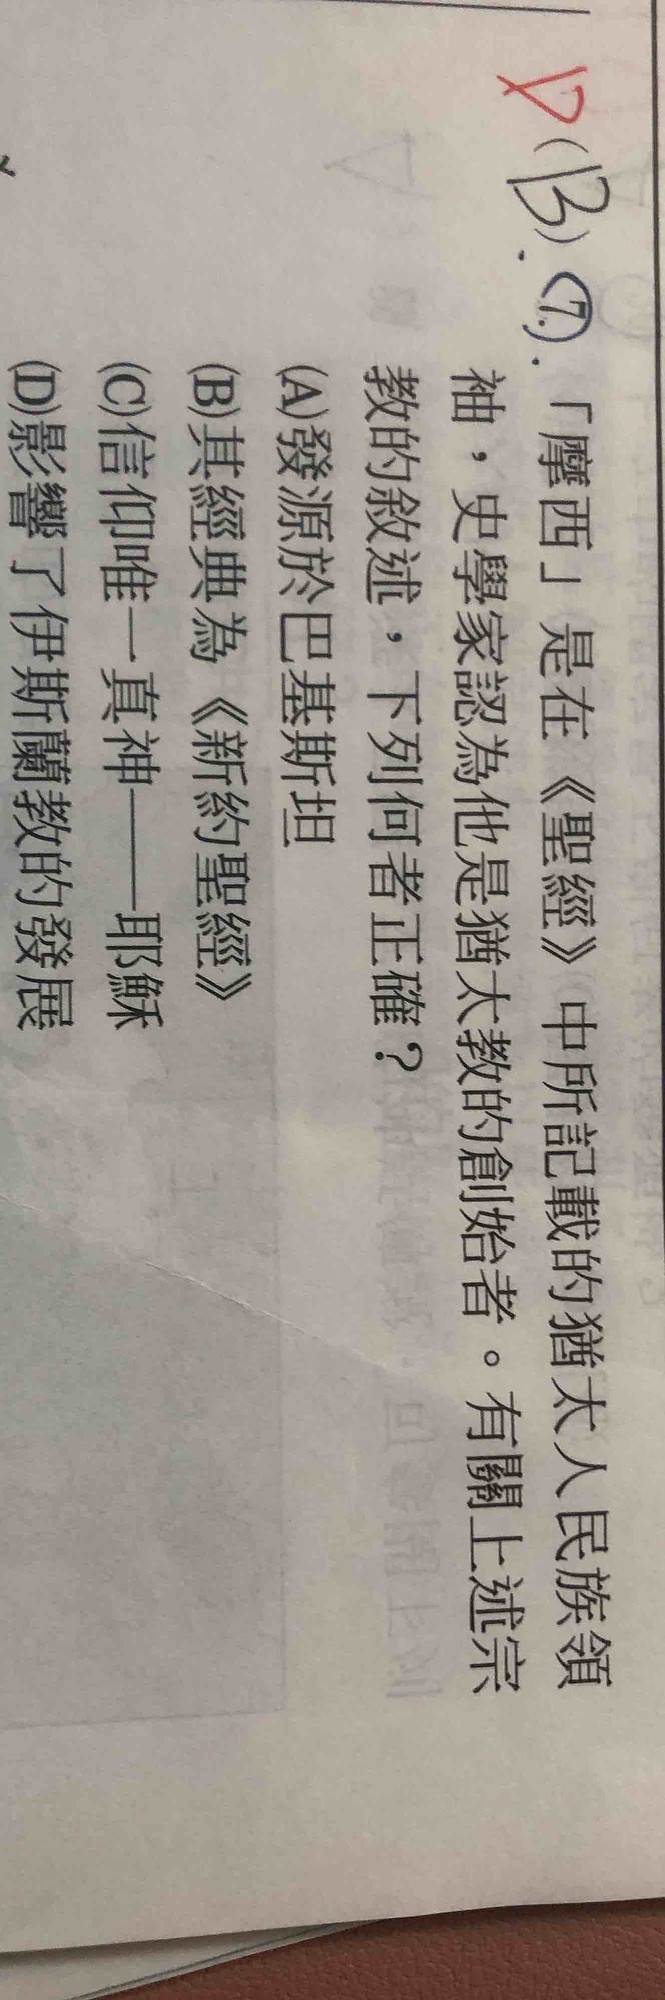 D(B).7.「摩西」是在《聖經》中所記載的猶太人民族領
袖，史學家認為他是猶太教的創始者。有關上述宗
教的敘述，下列何者正確？
(A)發源於巴基斯坦
(B)其經典為《新約聖經》
(C)信仰唯一真神——耶穌
(D)影響了伊斯蘭教的發展